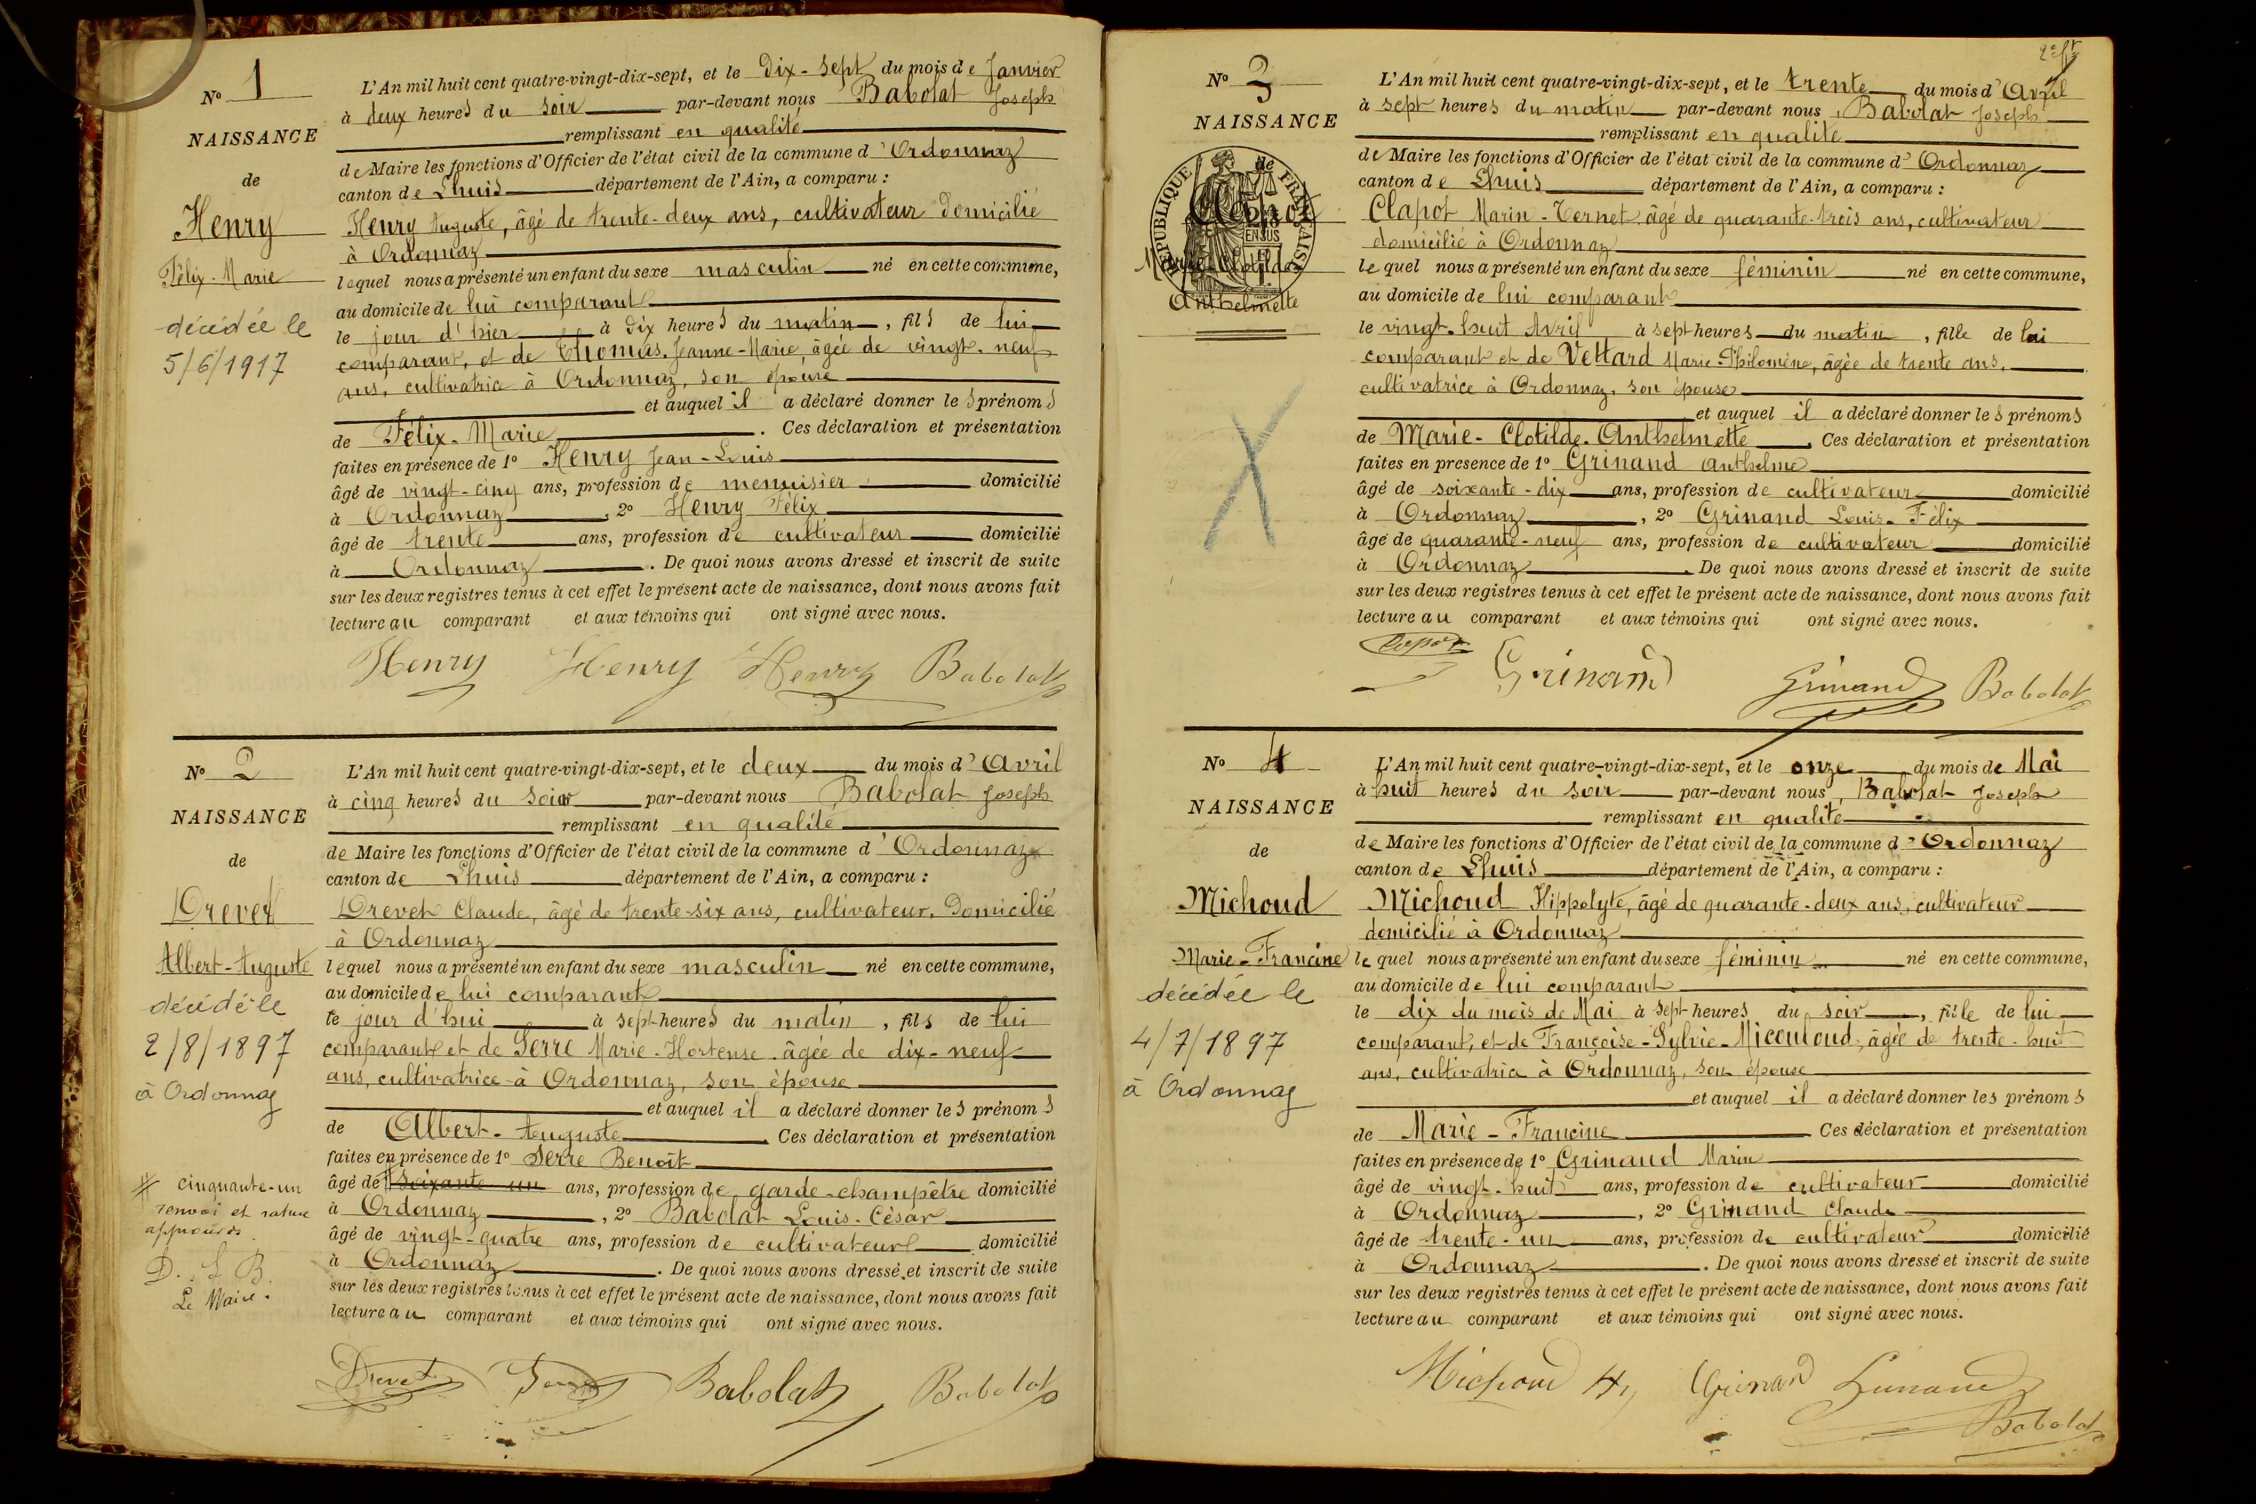 N° 1
NAISSANCE
de
Henry
Félix-Marie
décédée le
5/6/1917
L'An mil huit cent quatre-vingt-dix-sept, et le dix-sept du mois de Janvier
à deux heures du soir par-devant nous Babolat Joseph
remplissant en qualité
de Maire les fonctions d'Officier de l'état civil de la commune d'Ordonnaz
canton de Lhuis département de l'Ain, a comparu :
Henry Auguste, âgé de trente-deux ans, cultivateur domicilié
à Ordonnaz
lequel nous a présenté un enfant du sexe masculin né en cette commune,
au domicile de lui comparant
le jour d'hier à dix heures du matin, fils de lui
comparant, et de Thomas Jeanne-Marie, âgée de vingt-neuf
ans, cultivatrice à Ordonnaz, son épouse
et auquel il a déclaré donner les prénoms
de Félix-Marie. Ces déclaration et présentation
faites en présence de 1° Henry Jean-Louis
âgé de vingt-cinq ans, profession de menuisier domicilié
à Ordonnaz, 2° Henry Félix
âgé de trente ans, profession de cultivateur domicilié
à Ordonnaz. De quoi nous avons dressé et inscrit de suite
sur les deux registres tenus à cet effet le présent acte de naissance, dont nous avons fait
lecture au comparant et aux témoins qui ont signé avec nous.
Henry Henry Henry Babolat
N° 2
NAISSANCE
de
Drevet
Albert-Auguste
décédé le
2/8/1897
à Ordonnaz
# cinquante-un
renvoi et rature
approuvés.
D. S B.
Le Maire.
L'An mil huit cent quatre-vingt-dix-sept, et le deux du mois d'Avril
à cinq heures du soir par-devant nous Babolat Joseph
remplissant en qualité
de Maire les fonctions d'Officier de l'état civil de la commune d'Ordonnaz
canton de Lhuis département de l'Ain, a comparu :
Drevet Claude, âgé de trente-six ans, cultivateur. Domicilié
à Ordonnaz
lequel nous a présenté un enfant du sexe masculin né en cette commune,
au domicile de lui comparant
le jour d'hui à sept heures du matin, fils de lui
comparant et de Serre Marie-Hortense. âgée de dix-neuf
ans, cultivatrice à Ordonnaz, son épouse
et auquel il a déclaré donner les prénoms
de Albert-Auguste. Ces déclaration et présentation
faites en présence de 1° Serre Benoît
âgé de # soixante un ans, profession de garde-champêtre domicilié
à Ordonnaz, 2° Babolat Louis-César
âgé de vingt-quatre ans, profession de cultivateur domicilié
à Ordonnaz. De quoi nous avons dressé et inscrit de suite
sur les deux registres tenus à cet effet le présent acte de naissance, dont nous avons fait
lecture au comparant et aux témoins qui ont signé avec nous.
Drevet Serre Babolat Babolat
N° 3
NAISSANCE
de
RÉPUBLIQUE FRANÇAISE
Clapot
Marie-Clotilde
Anthelmette
L'An mil huit cent quatre-vingt-dix-sept, et le trente du mois d'Avril
à sept heures du matin par-devant nous, Babolat Joseph
remplissant en qualité
de Maire les fonctions d'Officier de l'état civil de la commune d'Ordonnaz
canton de Lhuis département de l'Ain, a comparu :
Clapot Marin-Ternet âgé de quarante-trois ans, cultivateur
domicilié à Ordonnaz
lequel nous a présenté un enfant du sexe féminin né en cette commune,
au domicile de lui comparant
le vingt-huit Avril à sept heures du matin, fille de lui
comparant et de Vettard Marie-Philomène, âgée de trente ans,
cultivatrice à Ordonnaz, son épouse
et auquel il a déclaré donner les prénoms
de Marie-Clotilde-Anthelmette. Ces déclaration et présentation
faites en présence de 1° Grinand Anthelme
âgé de soixante-dix ans, profession de cultivateur domicilié
à Ordonnaz, 2° Grinand Louis-Félix
âgé de quarante-neuf ans, profession de cultivateur domicilié
à Ordonnaz. De quoi nous avons dressé et inscrit de suite
sur les deux registres tenus à cet effet le présent acte de naissance, dont nous avons fait
lecture au comparant et aux témoins qui ont signé avec nous.
Clapot Grinand Grinand Babolat
N° 4
NAISSANCE
de
Michoud
Marie-Francine
décédée le
4/7/1897
à Ordonnaz
L'An mil huit cent quatre-vingt-dix-sept, et le onze du mois de Mai
à huit heures du soir par-devant nous, Babolat Joseph
remplissant en qualité
de Maire les fonctions d'Officier de l'état civil de la commune d'Ordonnaz
canton de Lhuis département de l'Ain, a comparu :
Michoud Hippolyte, âgé de quarante-deux ans, cultivateur
domicilié à Ordonnaz
lequel nous a présenté un enfant du sexe féminin né en cette commune,
au domicile de lui comparant
le dix du mois de Mai à sept heures du soir, fille de lui
comparant, et de Françoise-Sylvie-Micoulоud, âgée de trente-huit
ans, cultivatrice à Ordonnaz, son épouse
et auquel il a déclaré donner les prénoms
de Marie-Francine Ces déclaration et présentation
faites en présence de 1° Grinand Marin
âgé de vingt-huit ans, profession de cultivateur domicilié
à Ordonnaz, 2° Grinand Claude
âgé de trente-un ans, profession de cultivateur domicilié
à Ordonnaz. De quoi nous avons dressé et inscrit de suite
sur les deux registres tenus à cet effet le présent acte de naissance, dont nous avons fait
lecture au comparant et aux témoins qui ont signé avec nous.
Michoud Hy Grinand Grinand
Babolat